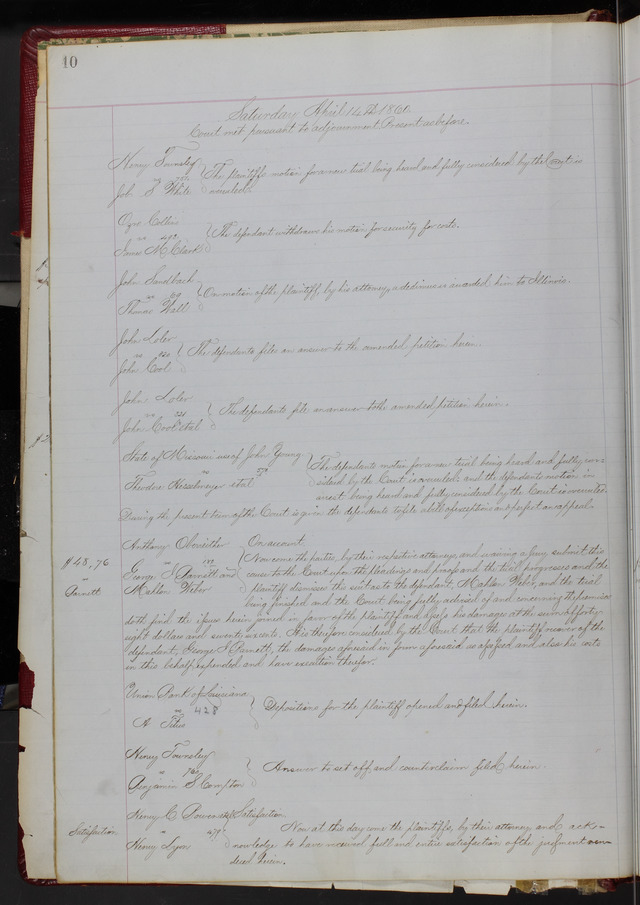 10
Saturday April 14th 1860.
Court met pursuant to adjournment Present as before.
Henry Townsley
vs
John S White
The plaintiffs motion for a new trial being heard and fully considered by the Court is
overruled.
vs
James M. Clark
The defendant withdraws his motion for security for costs.
John Sandbach
vs
Thomas Wall
On motion of the plaintiff, by his attorney, a dedimus is awarded him to Illinois.
John Loler
vs
John Cool
The defendants files an answer to the amended petition herein.
John Loler
vs
John Cool et al
The defendants file an answer to the amended petition herein.
State of Missouri use of John Young
vs
Theodore et al
The defendants motion for a new trial being heard and fully con-
sidered by the Court is overruled; and the defendants motion in
arrest being heard and fully considered by the Court is overruled.
During the present term of the Court is given the defendants to file a bill of exceptions and perfect an appeal.
Anthony
vs
George S Parnett and
Mahlon Weber
On account
$48.76
"
Parnett
Now come the parties by their respective attorneys, and waiving a Jury submit this
cause to the Court upon the pleadings and proofs and the trial progresses and the
plaintiff dismisses this suit as to the defendant, Mahlon Weber, and the trial
being finished and the Court being fully advised of and concerning the premises
doth find the issue herein joined in favor of the plaintiff and assess his damages at the sum of forty
eight dollars and seventy six cents. It is therefore considered by the Court that the plaintiff recover of the
defendant, George S Parnett, the damages aforesaid in form aforesaid as assessed and also his costs
in this behalf expended and have execution therefor.
Union Bank of Louisiana
vs 428
A
Depositions for the plaintiff opened and filed herein.
Henry Townsley
vs
Benjamin S Compton
Answer to set off and counterclaim filed herein.
Henry C
vs
Henry Lyon
Satisfaction
Satisfaction.
Now at this day come the plaintiffs, by their attorney and ack-
nowledge to have received full and entire satisfaction of the judgment ren-
dered herein.